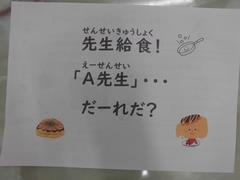 せんせいきゅうしょく
先生給食!
えーせんせい
「A先生」・・・
だーれだ?